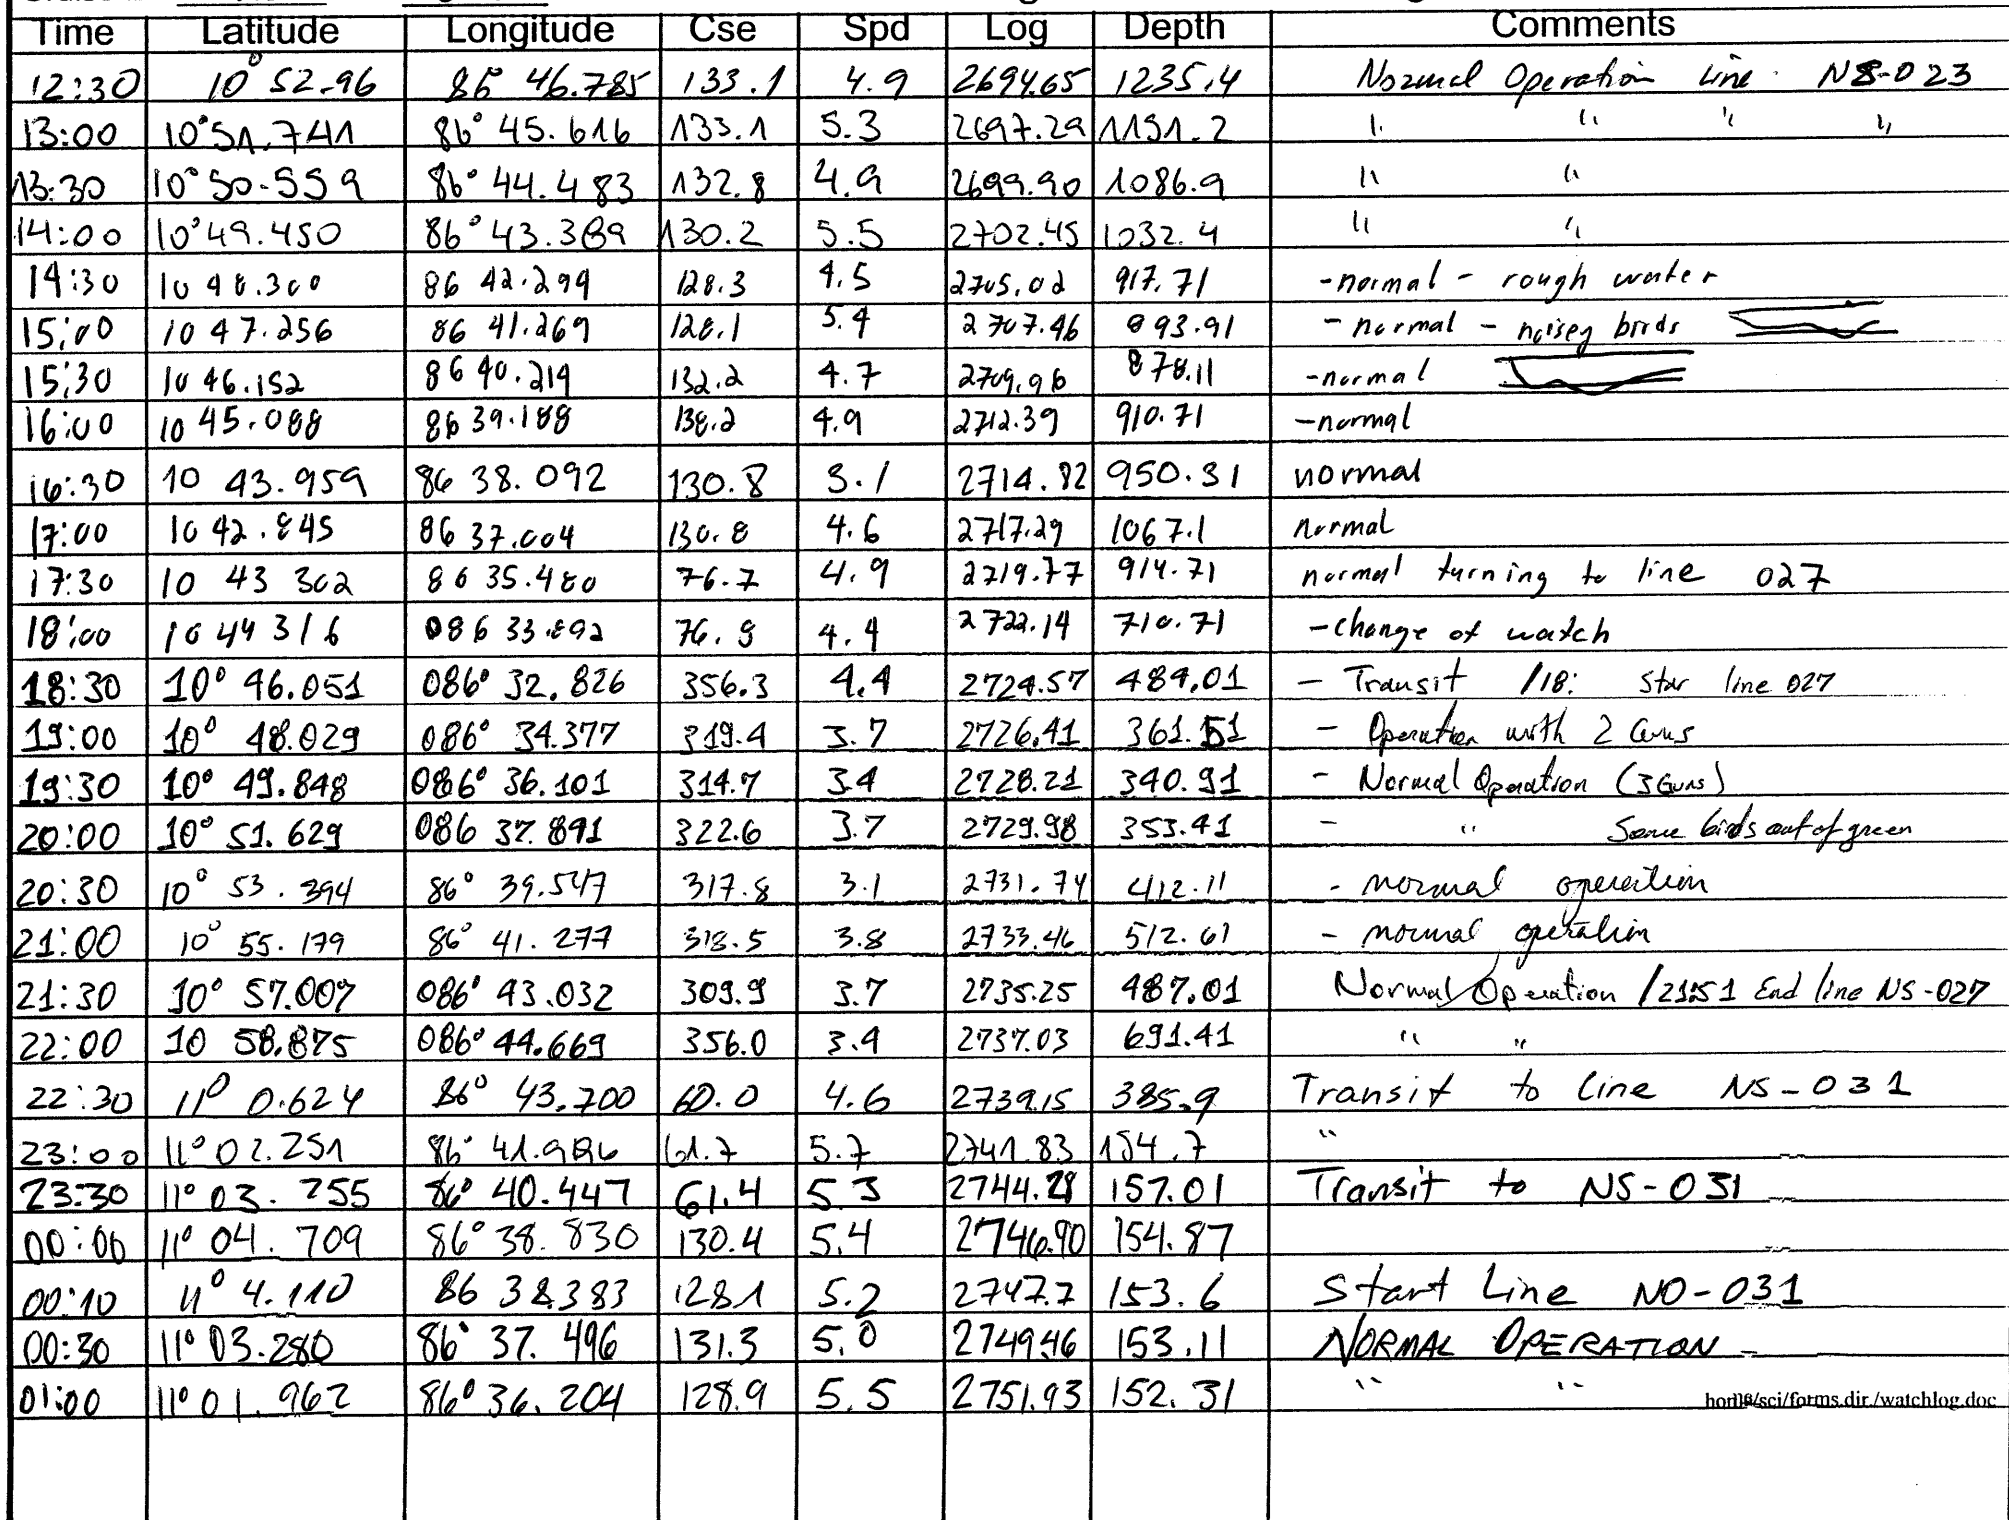 Time Latitude Longitude Cse Spd Log Depth Comments
12:30 10° 52.96 86° 46.785 133.1 4.9 2694.65 1235.4 Normal Operation Line NS-023
13:00 10°51.741 86° 45.616 133.1 5.3 2697.29 1151.2 " " " "
13:30 10°50.559 86° 44.483 132.8 4.9 2699.90 1086.9 " "
14:00 10°49.450 86° 43.389 130.2 5.5 2702.45 1032.4 " "
14:30 10 48.300 86 42.299 128.3 4.5 2705.02 917.71 -normal - rough water
15:00 10 47.256 86 41.269 128.1 5.4 2707.46 893.91 - normal - noisey birds
15:30 10 46.152 86 40.219 132.2 4.7 2709.96 878.11 -normal
16:00 10 45.088 86 39.188 138.2 4.9 2712.39 910.71 -normal
16:30 10 43.959 86 38.092 130.8 3.1 2714.82 950.31 normal
17:00 10 42.845 86 37.004 130.8 4.6 2717.29 1067.1 normal
17:30 10 43 302 86 35.480 76.7 4.9 2719.77 914.71 normal turning to line 027
18:00 10 44 316 086 33.892 76.9 4.4 2722.14 710.71 -change of watch
18:30 10° 46.051 086° 32.826 356.3 4.4 2724.57 484.01 - Transit /18: Star line 027
19:00 10° 48.029 086° 34.377 319.4 3.7 2726.41 361.51 - Operation with 2 Guns
19:30 10° 49.848 086° 36.101 314.7 3.4 2728.21 340.91 - Normal Operation (3 Guns)
20:00 10° 51.629 086 37.891 322.6 3.7 2729.98 353.41 - " Some birds out of green
20:30 10° 53.394 86° 39.547 317.8 3.1 2731.74 412.11 - normal operation
21:00 10° 55.179 86° 41.277 318.5 3.8 2733.46 512.61 - normal operation
21:30 10° 57.007 086° 43.032 309.9 3.7 2735.25 487.01 Normal Operation /2151 End line NS-027
22:00 10 58.875 086° 44.669 356.0 3.4 2737.03 691.41 " "
22:30 11° 0.624 86° 43.700 60.0 4.6 2739.15 385.9 Transit to line NS-031
23:00 11° 02.251 86° 41.986 61.7 5.7 2741.83 154.7 "
23:30 11° 03.255 86° 40.447 61.4 5.3 2744.28 157.01 Transit to NS-031
00:00 11° 04.709 86° 38.830 130.4 5.4 2746.90 154.87
00:10 11° 4.110 86 38.383 128.1 5.2 2747.7 153.6 Start Line NO-031
00:30 11° 03.280 86° 37.496 131.3 5.0 2749.46 153.11 NORMAL OPERATION -
01:00 11° 01.962 86° 36.204 128.9 5.5 2751.93 152.31 " "
/sci/forms.dir./watchlog.doc